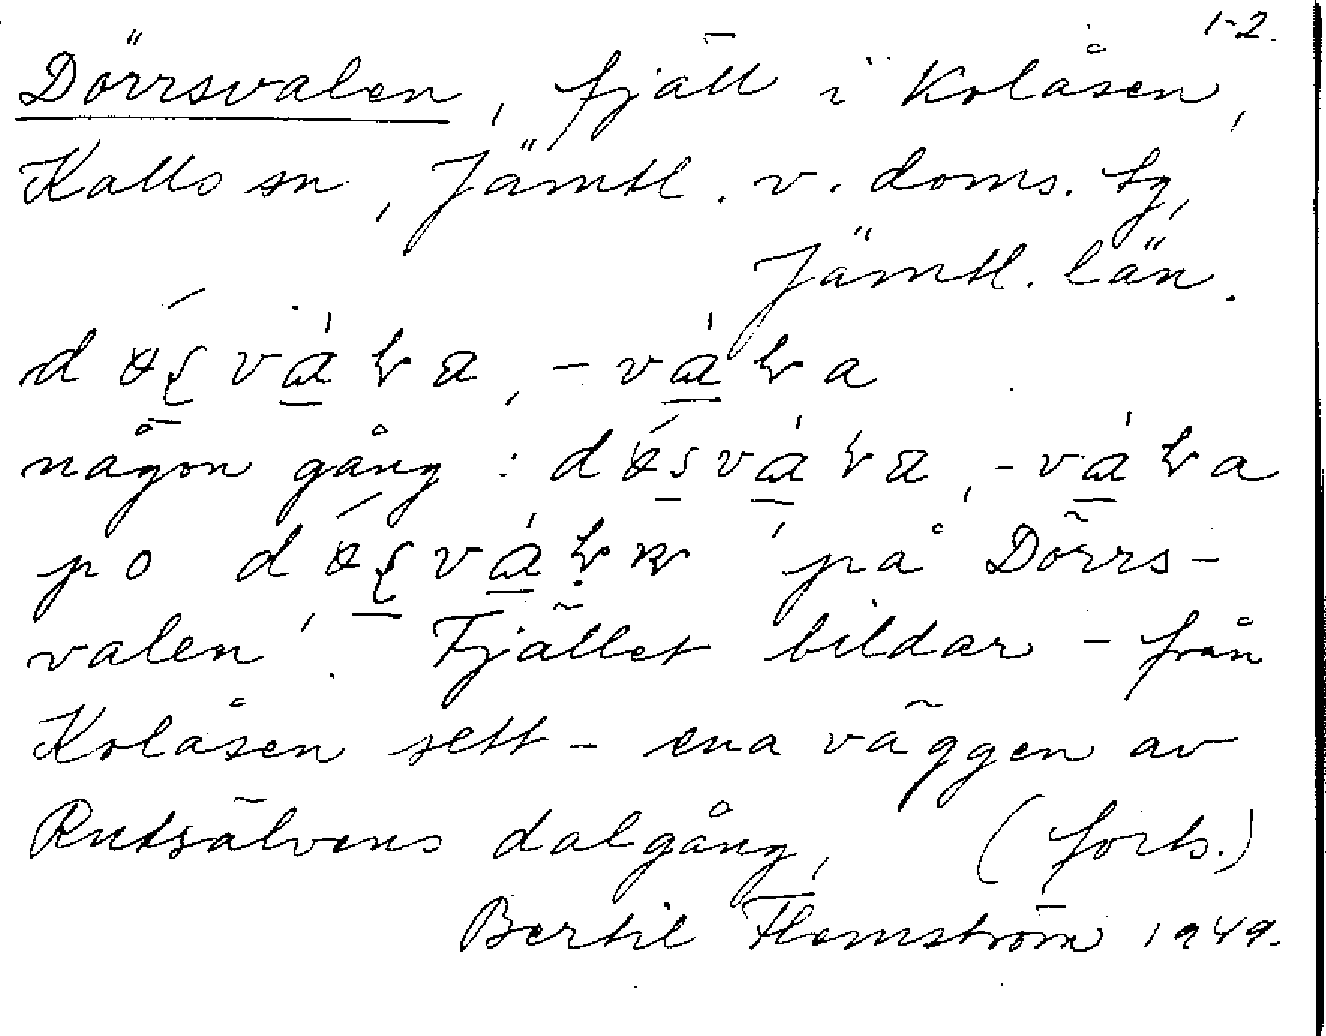 1-2.
Dörrsvalen, fjäll i Kolåsen,
Kalls sn, Jämtl. v. doms. tg,
Jämtl. län.
någon gång :
po 'på Dörrs-
valen'. Fjället bildar – från
Kolåsen sett – ena väggen av
Rutsälvens dalgång, (forts.)
Bertil Flemström 1949.